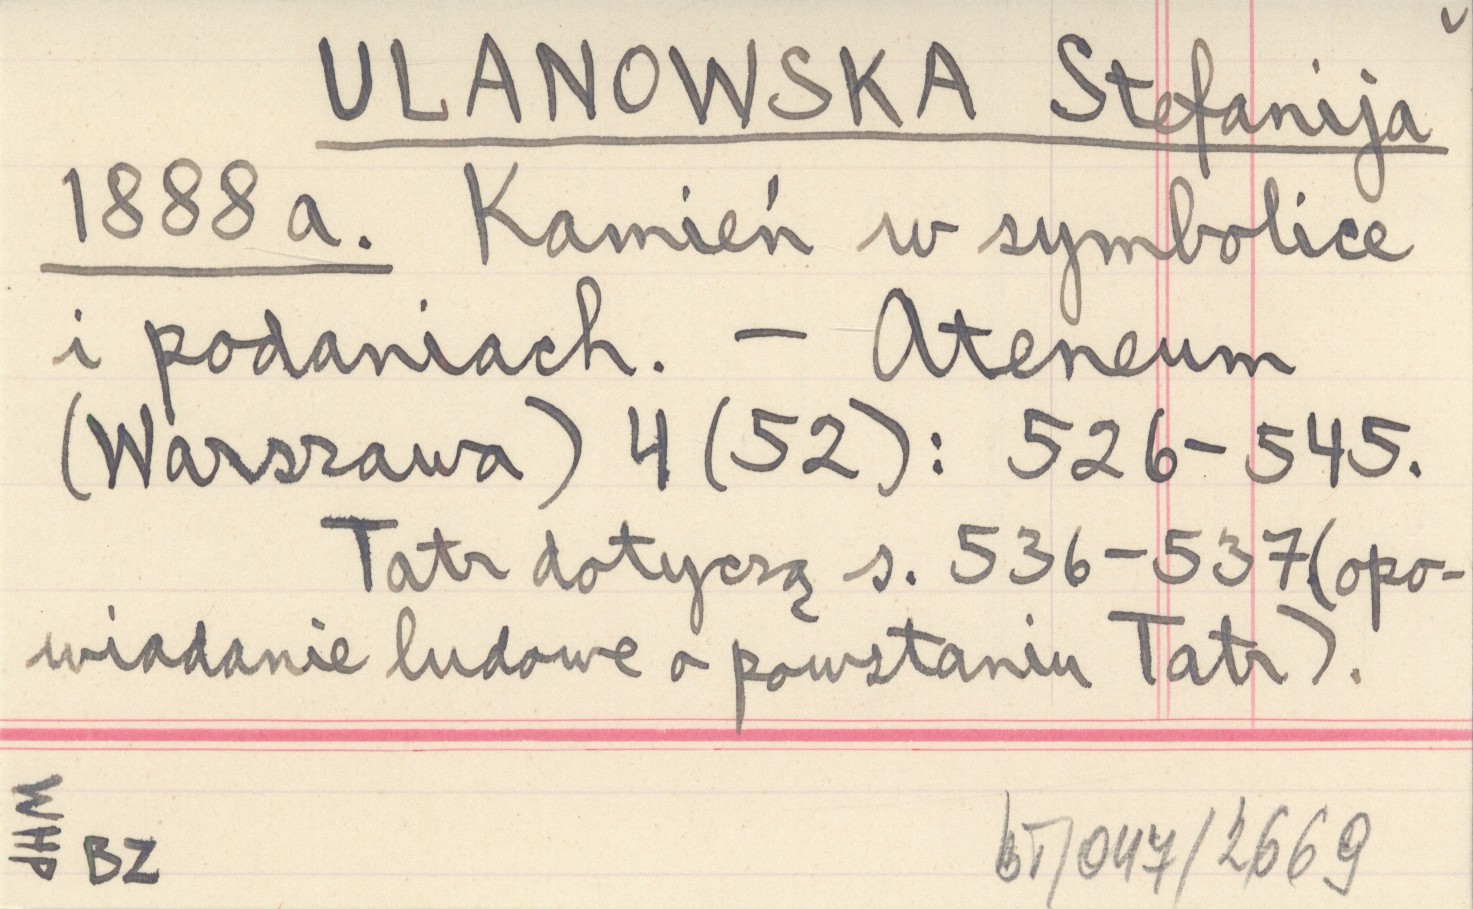 ULANOWSKA Stefanija
1888a. Kamień w symbolice
i podaniach. – Ateneum
(Warszawa) 4 (52): 526-545.
Tatr dotyczą s. 536-537 (opo-
wiadanie ludowe o powstaniu Tatr).
WHP
BZ
bT/047/2669